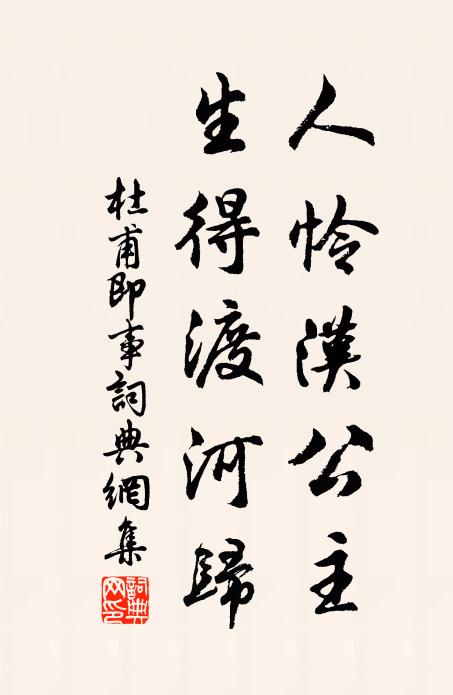 人怜漢公主
生得渡河歸
杜甫即事詞典網集
詞典網印